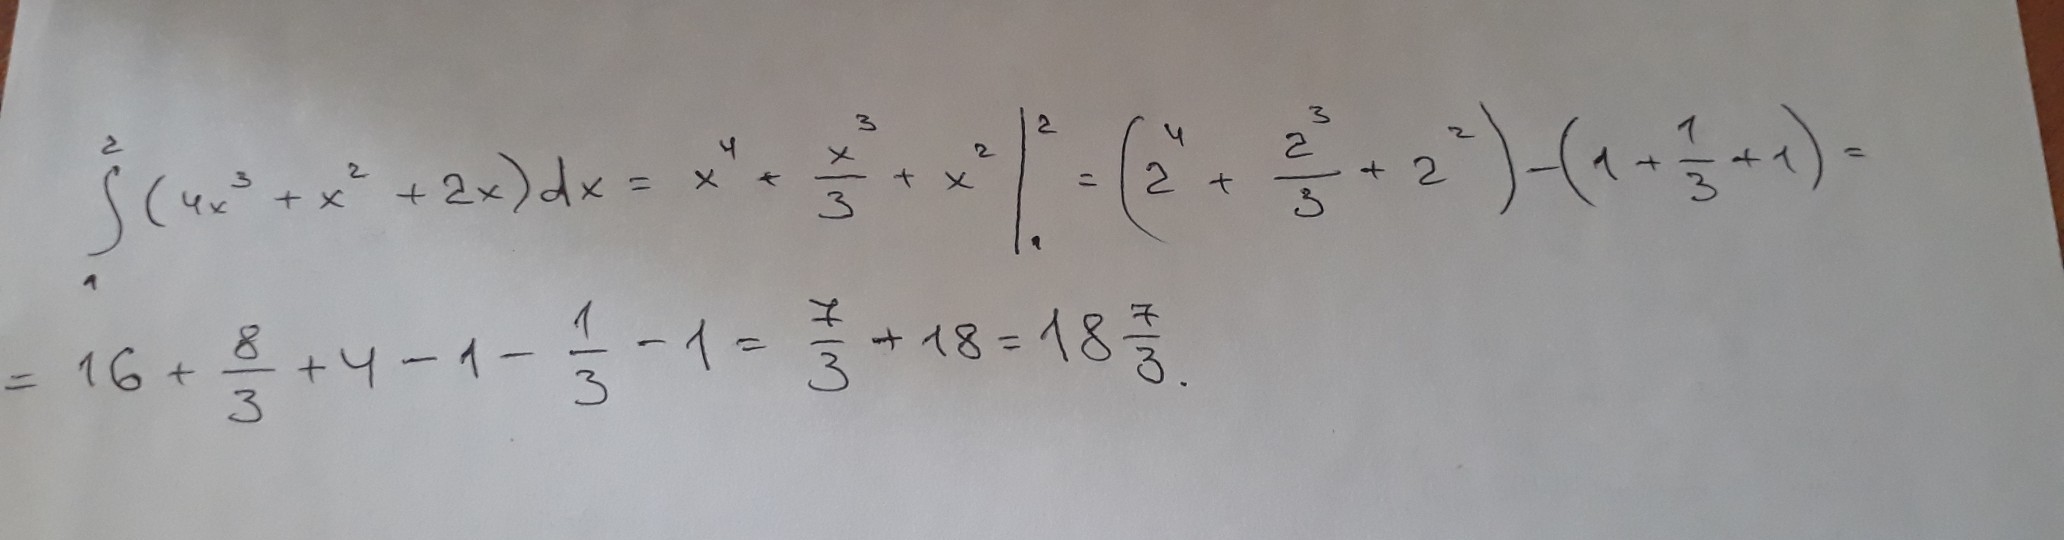 ∫₁² (4x³ + x² + 2x) dx = x⁴ + x³/3 + x² |₁² = (2⁴ + 2³/3 + 2²) - (1 + 1/3 + 1) =
= 16 + 8/3 + 4 - 1 - 1/3 - 1 = 7/3 + 18 = 18 7/3.